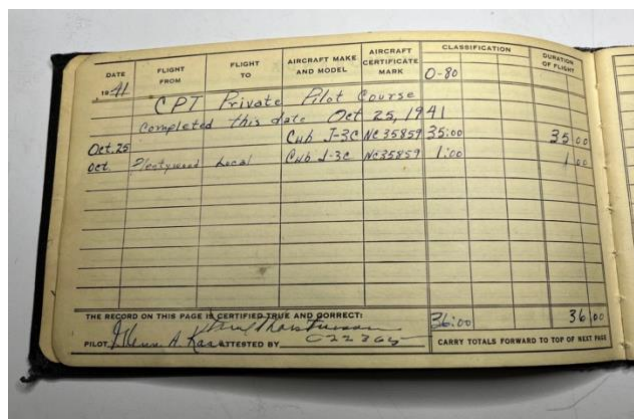 DATE FLIGHT FROM FLIGHT TO AIRCRAFT MAKE AND MODEL AIRCRAFT CERTIFICATE MARK CLASSIFICATION DURATION OF FLIGHT
1941 0-80
CPT Private Pilot Course
Completed this date Oct 25, 1941
Oct. 25 Cub J-3C NC35859 35:00 35 00
Oct. Local Cub J-3C NC35859 1:00 1 00
THE RECORD ON THIS PAGE IS CERTIFIED TRUE AND CORRECT: 36:00 36 00
PILOT A. ATTESTED BY CARRY TOTALS FORWARD TO TOP OF NEXT PAGE